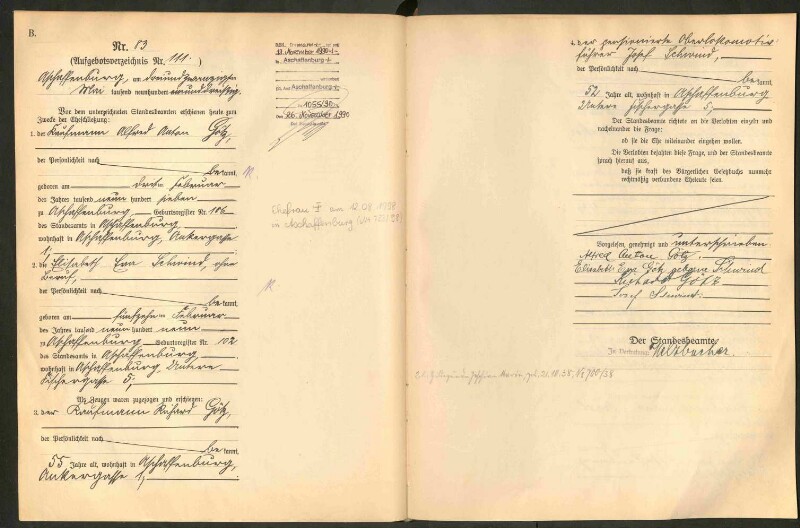 B.
Nr. 83
(Aufgebotsverzeichnis Nr. 111.)
Aschaffenburg, am
Mai tausend neunhundert
Vor dem unterzeichneten Standesbeamten erschienen heute zum
Zwecke der Eheschließung:
1. der Kaufmann Alfred Anton Götz,
der Persönlichkeit nach
be kannt,
geboren am dritten Februar
des Jahres tausend neun hundert sieben
zu Aschaffenburg Geburtsregister Nr. 106
des Standesamts in Aschaffenburg,
wohnhaft in Aschaffenburg, Ankergasse
1;
2. die Elisabeth Eva Schwind, ohne
Beruf,
der Persönlichkeit nach
be kannt,
geboren am fünfzehnten Februar
des Jahres tausend neun hundert neun
zu Aschaffenburg Geburtsregister Nr. 102
des Standesamts in Aschaffenburg,
wohnhaft in Aschaffenburg, Untere
Fischergasse 5;
Als Zeugen waren zugezogen und erschienen:
3. der Kaufmann Richard Götz,
der Persönlichkeit nach
be kannt,
55 Jahre alt, wohnhaft in Aschaffenburg,
Ankergasse 1;
13. November 1990
Aschaffenburg
Aschaffenburg
1055/30
26. November 1990
Ehefrau † am 12.08.1998
in Aschaffenburg
4. der pensionierte Oberlokomotiv-
führer Josef Schwind,
der Persönlichkeit nach
be kannt,
52 Jahre alt, wohnhaft in Aschaffenburg
Untere Fischergasse 5;
Der Standesbeamte richtete an die Verlobten einzeln und
nacheinander die Frage:
ob sie die Ehe miteinander eingehen wollen.
Die Verlobten bejahten diese Frage, und der Standesbeamte
sprach hierauf aus,
daß sie kraft des Bürgerlichen Gesetzbuchs nunmehr
rechtmäßig verbundene Eheleute seien.
Vorgelesen, genehmigt und unterschrieben
Alfred Anton Götz.
Elisabeth Eva Götz geborene Schwind
Richard Götz
Josef Schwind.
Der Standesbeamte
In Vertretung: